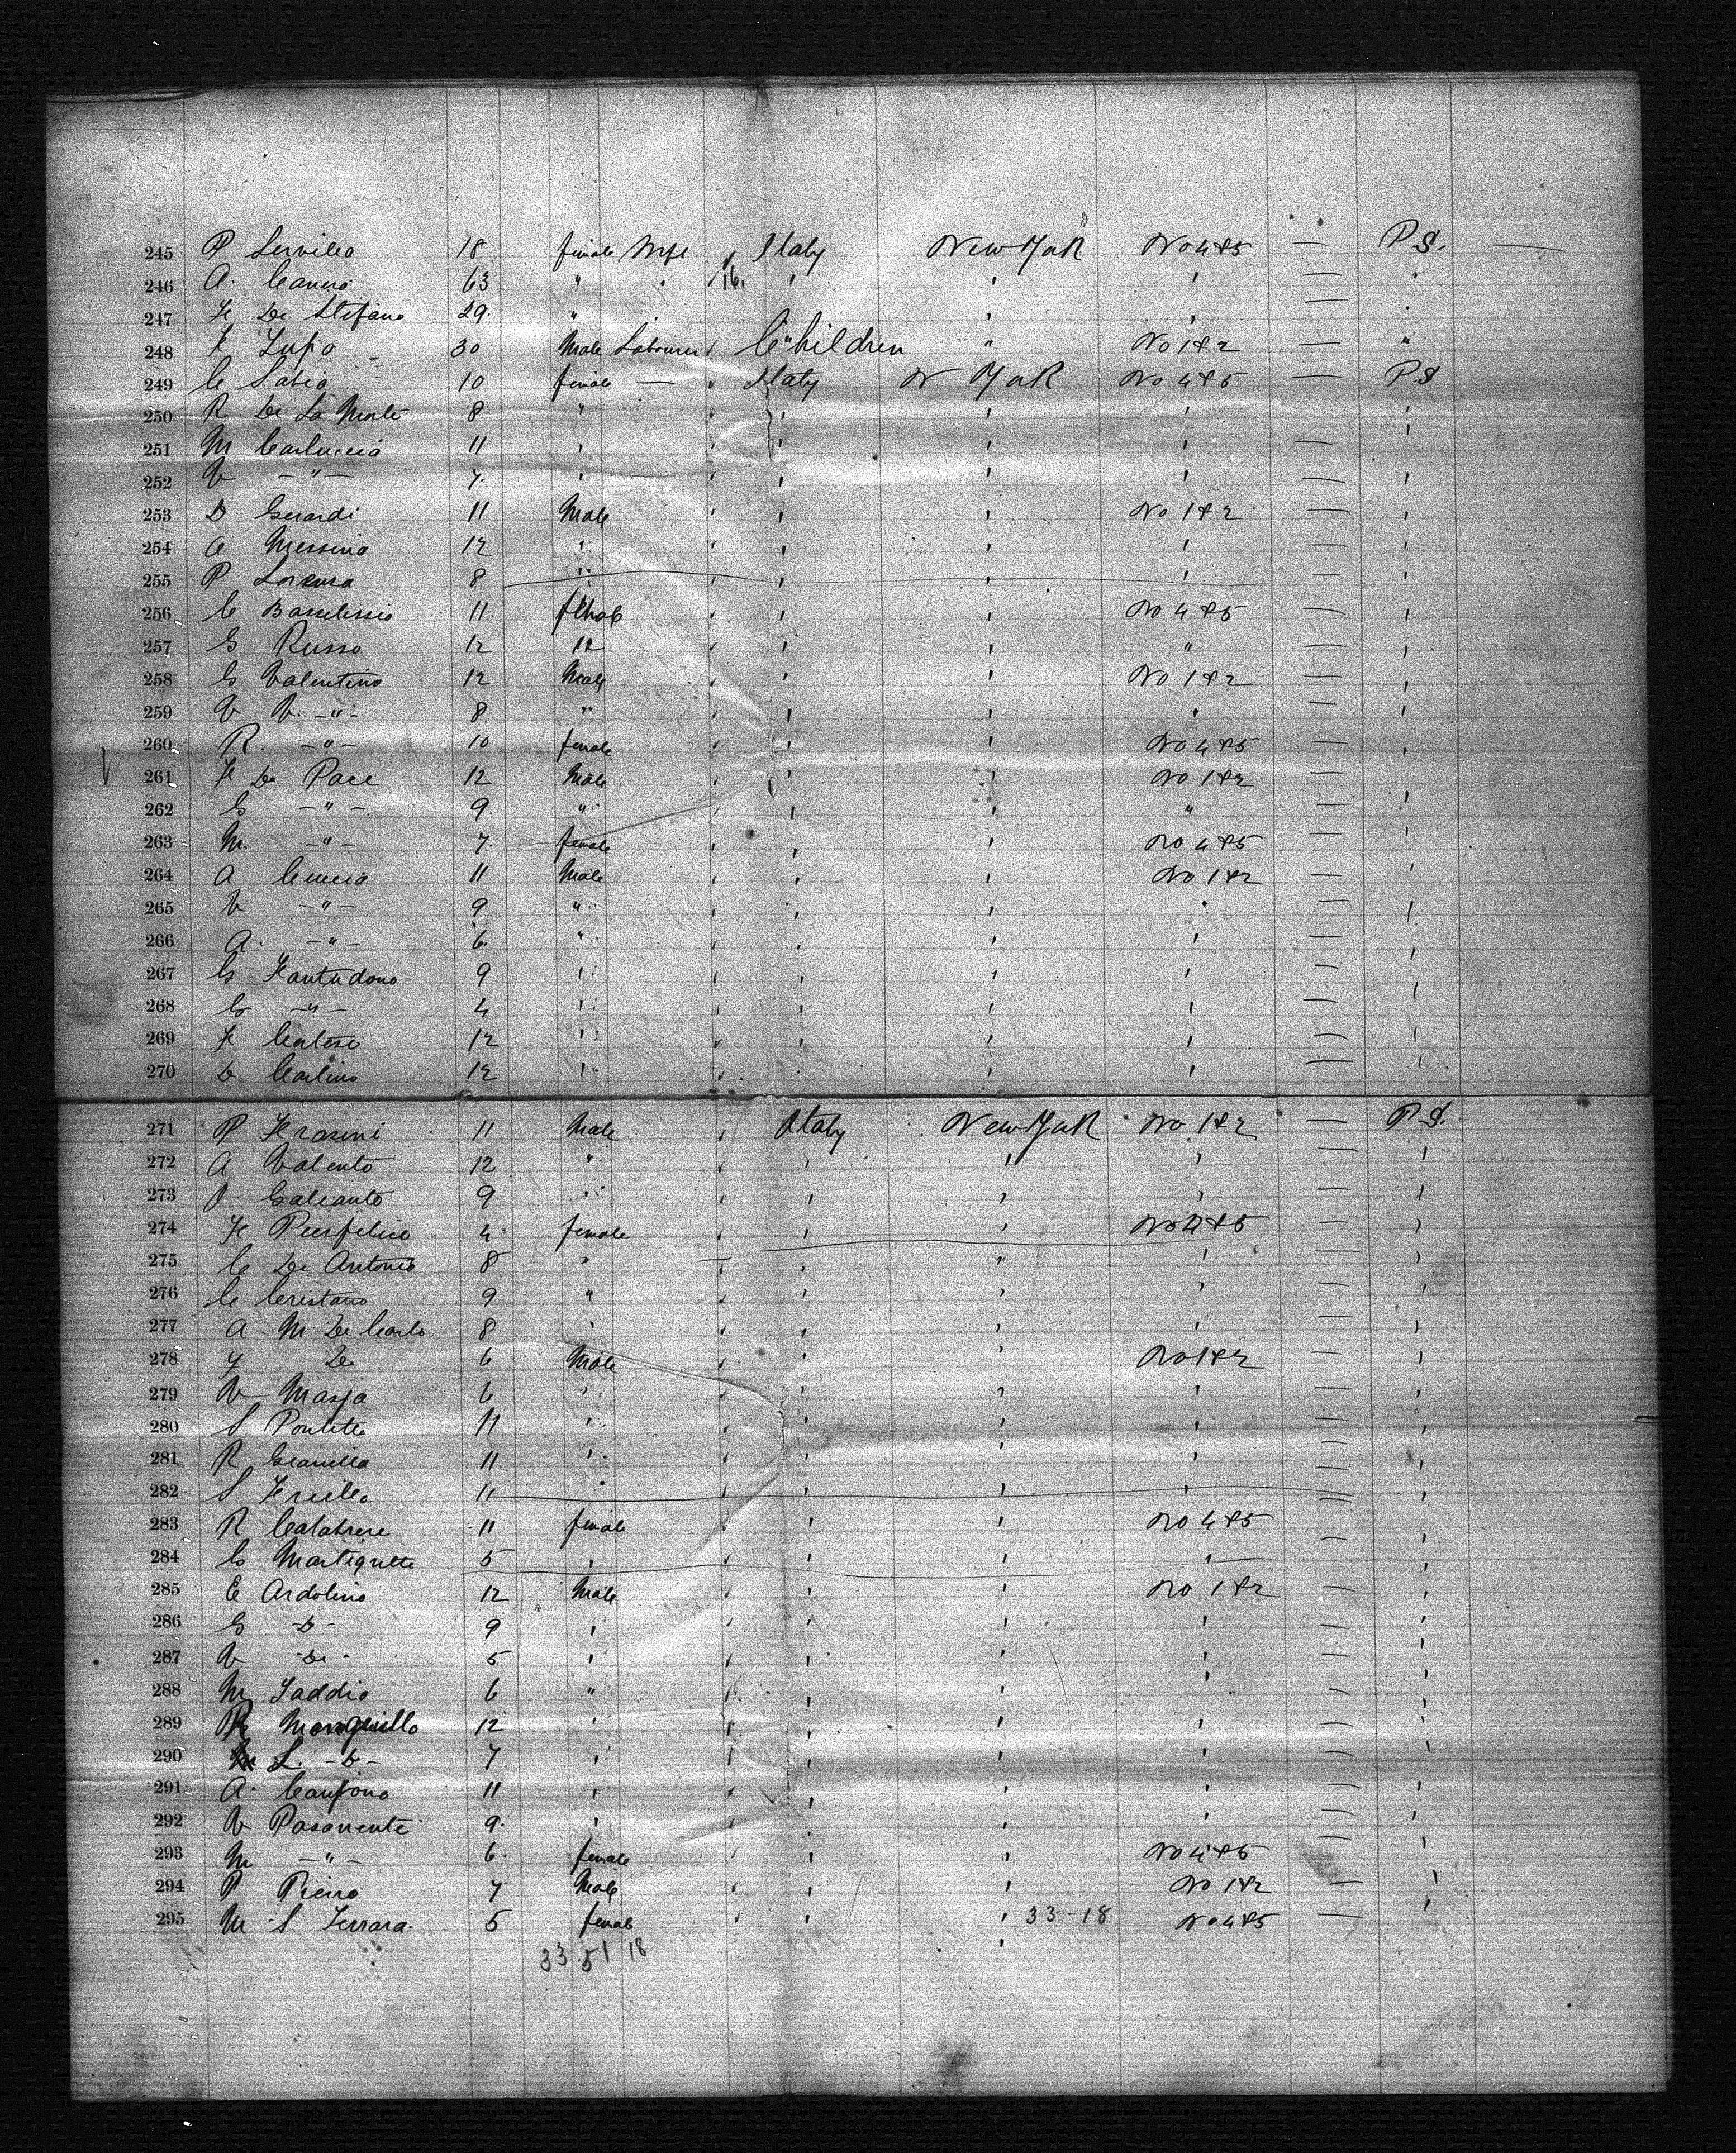 245 P Servillo 18 female Wife " Italy New York No 4 & 5 — P.S. —
246 A. Canero 63 " " 16. " " " — "
247 F De Stefano 29. " " " — "
248 F Lupo 30 Male Labourer " Children " No 1 & 2 — "
249 C Sabia 10 female — " Italy N York No 4 & 5 — P.S
250 R De La Morte 8 " " " " " — "
251 M Carluccio 11 " " " " " — "
252 V — " — 7. " " " " " — "
253 D Gerardi 11 Male " " " No 1 & 2 — "
254 A Messina 12 " " " " " — "
255 P 8 " " " " " — "
256 C 11 female " " " No 4 & 5 — "
257 G Russo 12 " " " " " — "
258 G Valentino 12 Male " " " No 1 & 2 — "
259 V V. — " — 8 " " " " " — "
260 R. — " — 10 female " " " No 4 & 5 — "
261 F De Pace 12 Male " " " No 1 & 2 —
262 G — " — 9. " " " " " — "
263 M. — " — 7. female " " " No 4 & 5 — "
264 A 11 Male " " " No 1 & 2 — "
265 V — " — 9 " " " " " — "
266 A. — " — 6. " " " " " — "
267 G 9 " " " " " — "
268 G — " — 4 " " " " " — "
269 F 12 " " " " " — "
270 D Carlino 12 " " " " " — "
271 P Frasini 11 Male " Italy New York No 1 & 2 — P.S.
272 A Valento 12 " " " " " — "
273 Galianto 9 " " " " " — "
274 F 4. female " " " No 4 & 5 — "
275 C De Antonio 8 " — " " " — "
276 C Cristano 9 " " " " " — "
277 A M De Carlo 8 " " " " " — "
278 Y Do 6 Male " " " No 1 & 2 — "
279 V 6 " " " " " — "
280 S 11 " " " " " — "
281 R 11 " " " " " — "
282 S 11 " " " " " — "
283 R Calabrese 11 female " " " No 4 & 5 — "
284 G Martignetti 5 " " " " " — "
285 E Ardolino 12 Male " " " No 1 & 2 — "
286 G — D — 9 " " " " " — "
287 V Do 5 " " " " " — "
288 M Taddio 6 " " " " " — "
289 12 " " " " " — "
290 L. — D — 7 " " " " " — "
291 A. 11 " " " " " — "
292 V Pasanente 9. " " " " — "
293 M — " — 6. female " " " No 4 & 5 — "
294 P Pierro 7 Male " " " No 1 & 2 — "
295 M S Ferrara 5 female " " " 33 - 18 No 4 & 5 — "
33 51 18